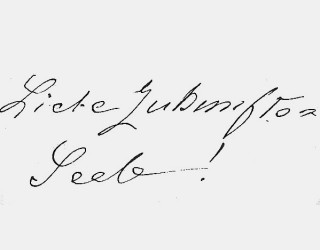 Liebe Zukunfts=
Seele!